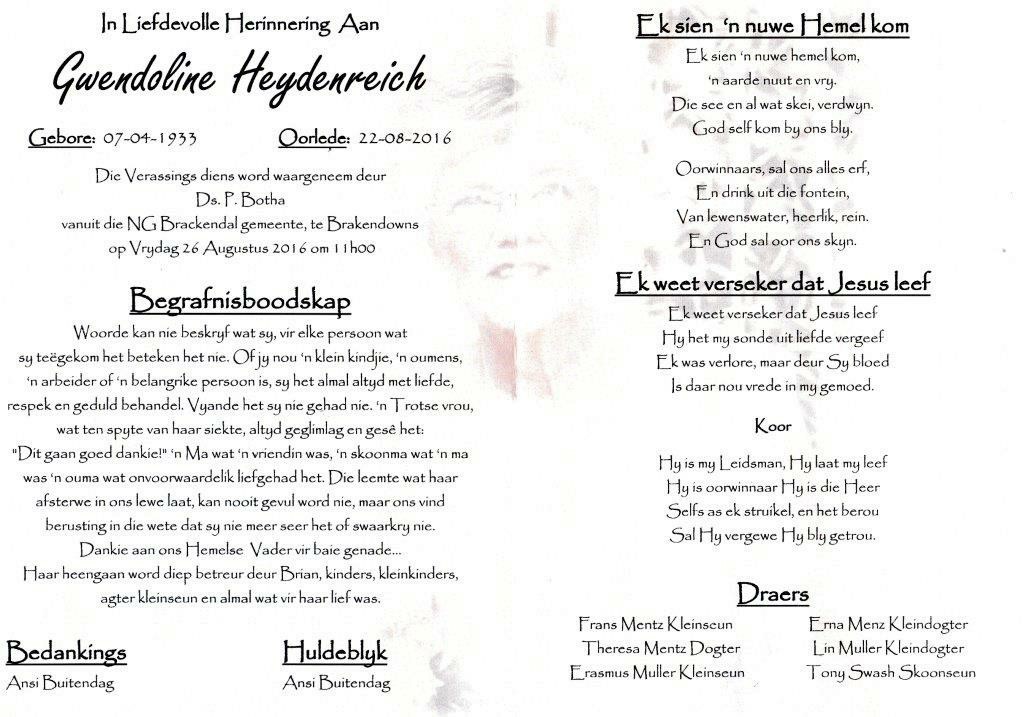 In Liefdevolle Herinnering Aan
Gwendoline Heydenreich
Gebore: 07-04-1933 Oorlede: 22-08-2016
Die Verassings diens word waargeneem deur
Ds. P. Botha
vanuit die NG Brackendal gemeente, te Brakendowns
op Vrydag 26 Augustus 2016 om 11h00
Begrafnisboodskap
Woorde kan nie beskryf wat sy, vir elke persoon wat
sy teëgekom het beteken het nie. Of jy nou 'n klein kindjie, 'n oumens,
'n arbeider of 'n belangrike persoon is, sy het almal altyd met liefde,
respek en geduld behandel. Vyande het sy nie gehad nie. 'n Trotse vrou,
wat ten spyte van haar siekte, altyd geglimlag en gesê het:
"Dit gaan goed dankie!" 'n Ma wat 'n vriendin was, 'n skoonma wat 'n ma
was 'n ouma wat onvoorwaardelik liefgehad het. Die leemte wat haar
afsterwe in ons lewe laat, kan nooit gevul word nie, maar ons vind
berusting in die wete dat sy nie meer seer het of swaarkry nie.
Dankie aan ons Hemelse Vader vir baie genade...
Haar heengaan word diep betreur deur Brian, kinders, kleinkinders,
agter kleinseun en almal wat vir haar lief was.
Bedankings Huldeblyk
Ansi Buitendag Ansi Buitendag
Ek sien 'n nuwe Hemel kom
Ek sien 'n nuwe hemel kom,
'n aarde nuut en vry.
Die see en al wat skei, verdwyn.
God self kom by ons bly.
Oorwinnaars, sal ons alles erf,
En drink uit die fontein,
Van lewenswater, heerlik, rein.
En God sal oor ons skyn.
Ek weet verseker dat Jesus leef
Ek weet verseker dat Jesus leef
Hy het my sonde uit liefde vergeef
Ek was verlore, maar deur Sy bloed
Is daar nou vrede in my gemoed.
Koor
Hy is my Leidsman, Hy laat my leef
Hy is oorwinnaar Hy is die Heer
Selfs as ek struikel, en het berou
Sal Hy vergewe Hy bly getrou.
Draers
Frans Mentz Kleinseun Erna Menz Kleindogter
Theresa Mentz Dogter Lin Muller Kleindogter
Erasmus Muller Kleinseun Tony Swash Skoonseun